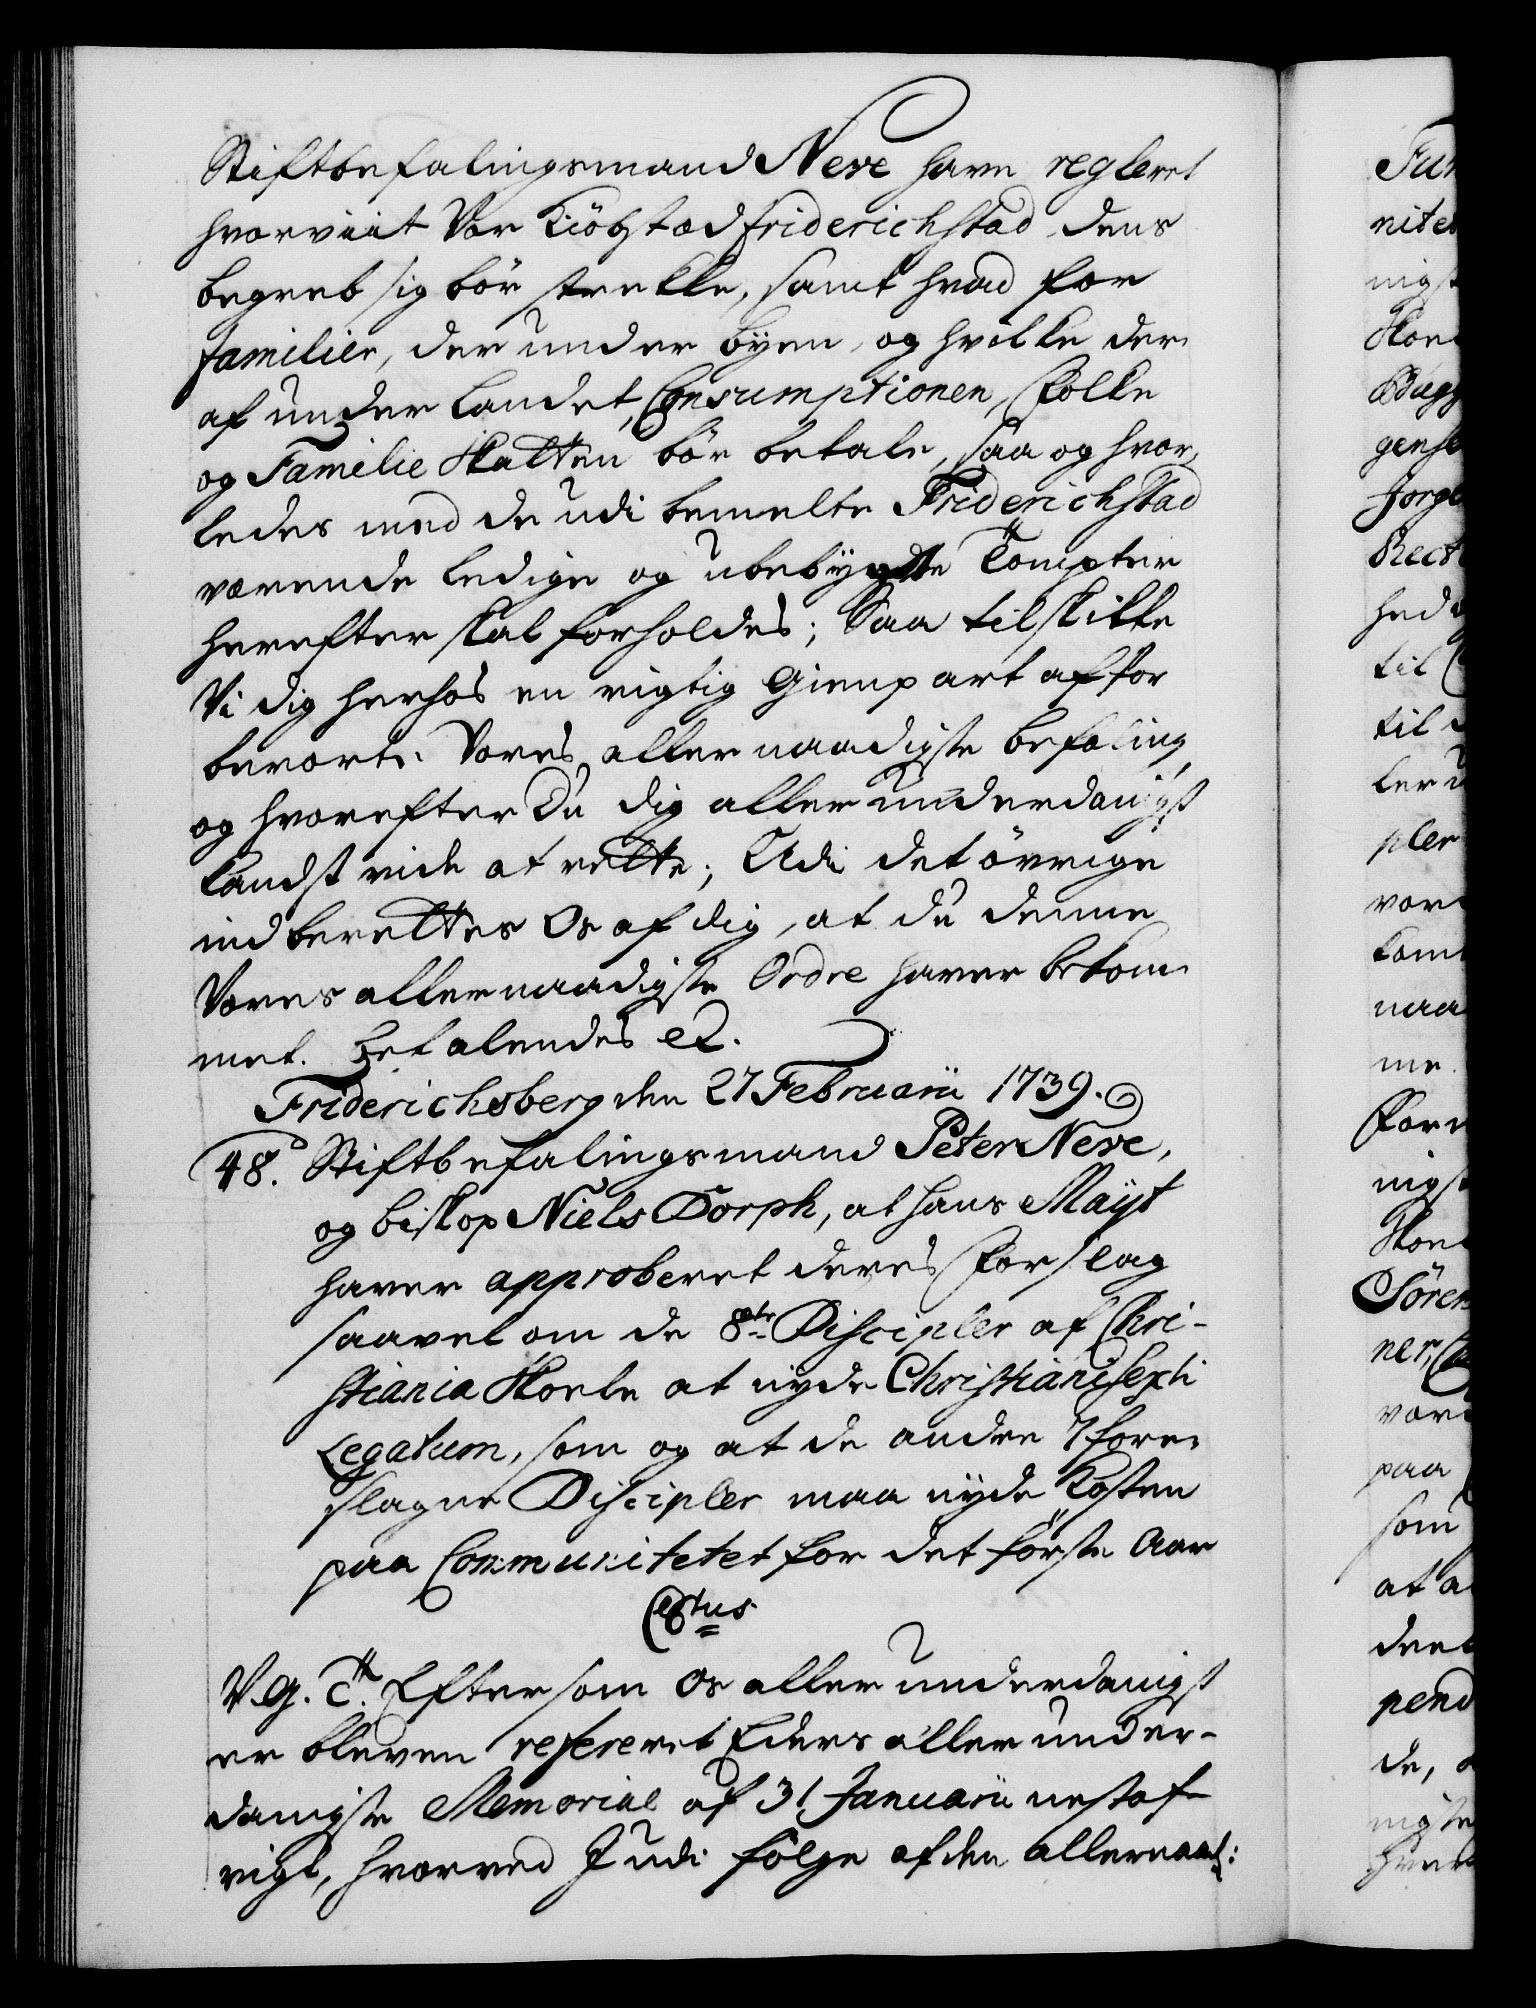 Stiftbefalingsmand Neve have regleret
hvorviit Vor Kiöbstad Friderichstad dens
begreb sig bör strekke, samt hvad for
familier, der under byen, og hvilke der
af under Landet, Consumptionen, Folke
og Familie Skatten bör betale, saa og hvor,
ledes med de udi bemelte Friderichstad
værende ledige og ubebygte Tompter
herefter skal forholdes; Saa tilskikke
Vi dig herhos en rigtig Gienpart af for
berørte Vores allernaadigste befaling,
og hvorefter Du dig allerunderdanigst
kandst vide at rette; Udi det övrige
indberettes Os af dig, at du denne
Vores allernaadigste Ordre haver bekom
met. Befalendes etc.
Friderichsberg den 27 Februarii 1739.
48. Stiftbefalingsmand Peter Neve,
og biskop Niels Dorph, at Hans Mayt
haver approberet deres Forslag
saavel om de 8te Discipler af Chri-
stiania Skoele at nyde Christiani Sexti
Legatum, som og at de andre 7 fore-
slagne Discipler maa nyde Kosten
paa Communitetet for det förste Aar
C6tus
V. G. T. Eftersom Os allerunderdanigst
er bleven refereret Eders allerunder-
danigste Memorial af 31 Januarii nestaf-
vigt, hvorved I udi fölge af den allernaad:
Fun
nites
nigst
Skoe
Bugg
gense
Jorge
Rect
hed
til
til
ler
pler
vor
kom
naa
me
For
nigst
Skoe
Sören
ner,
vor
paa
som
at a
deel
pend
de,
nigste
hver